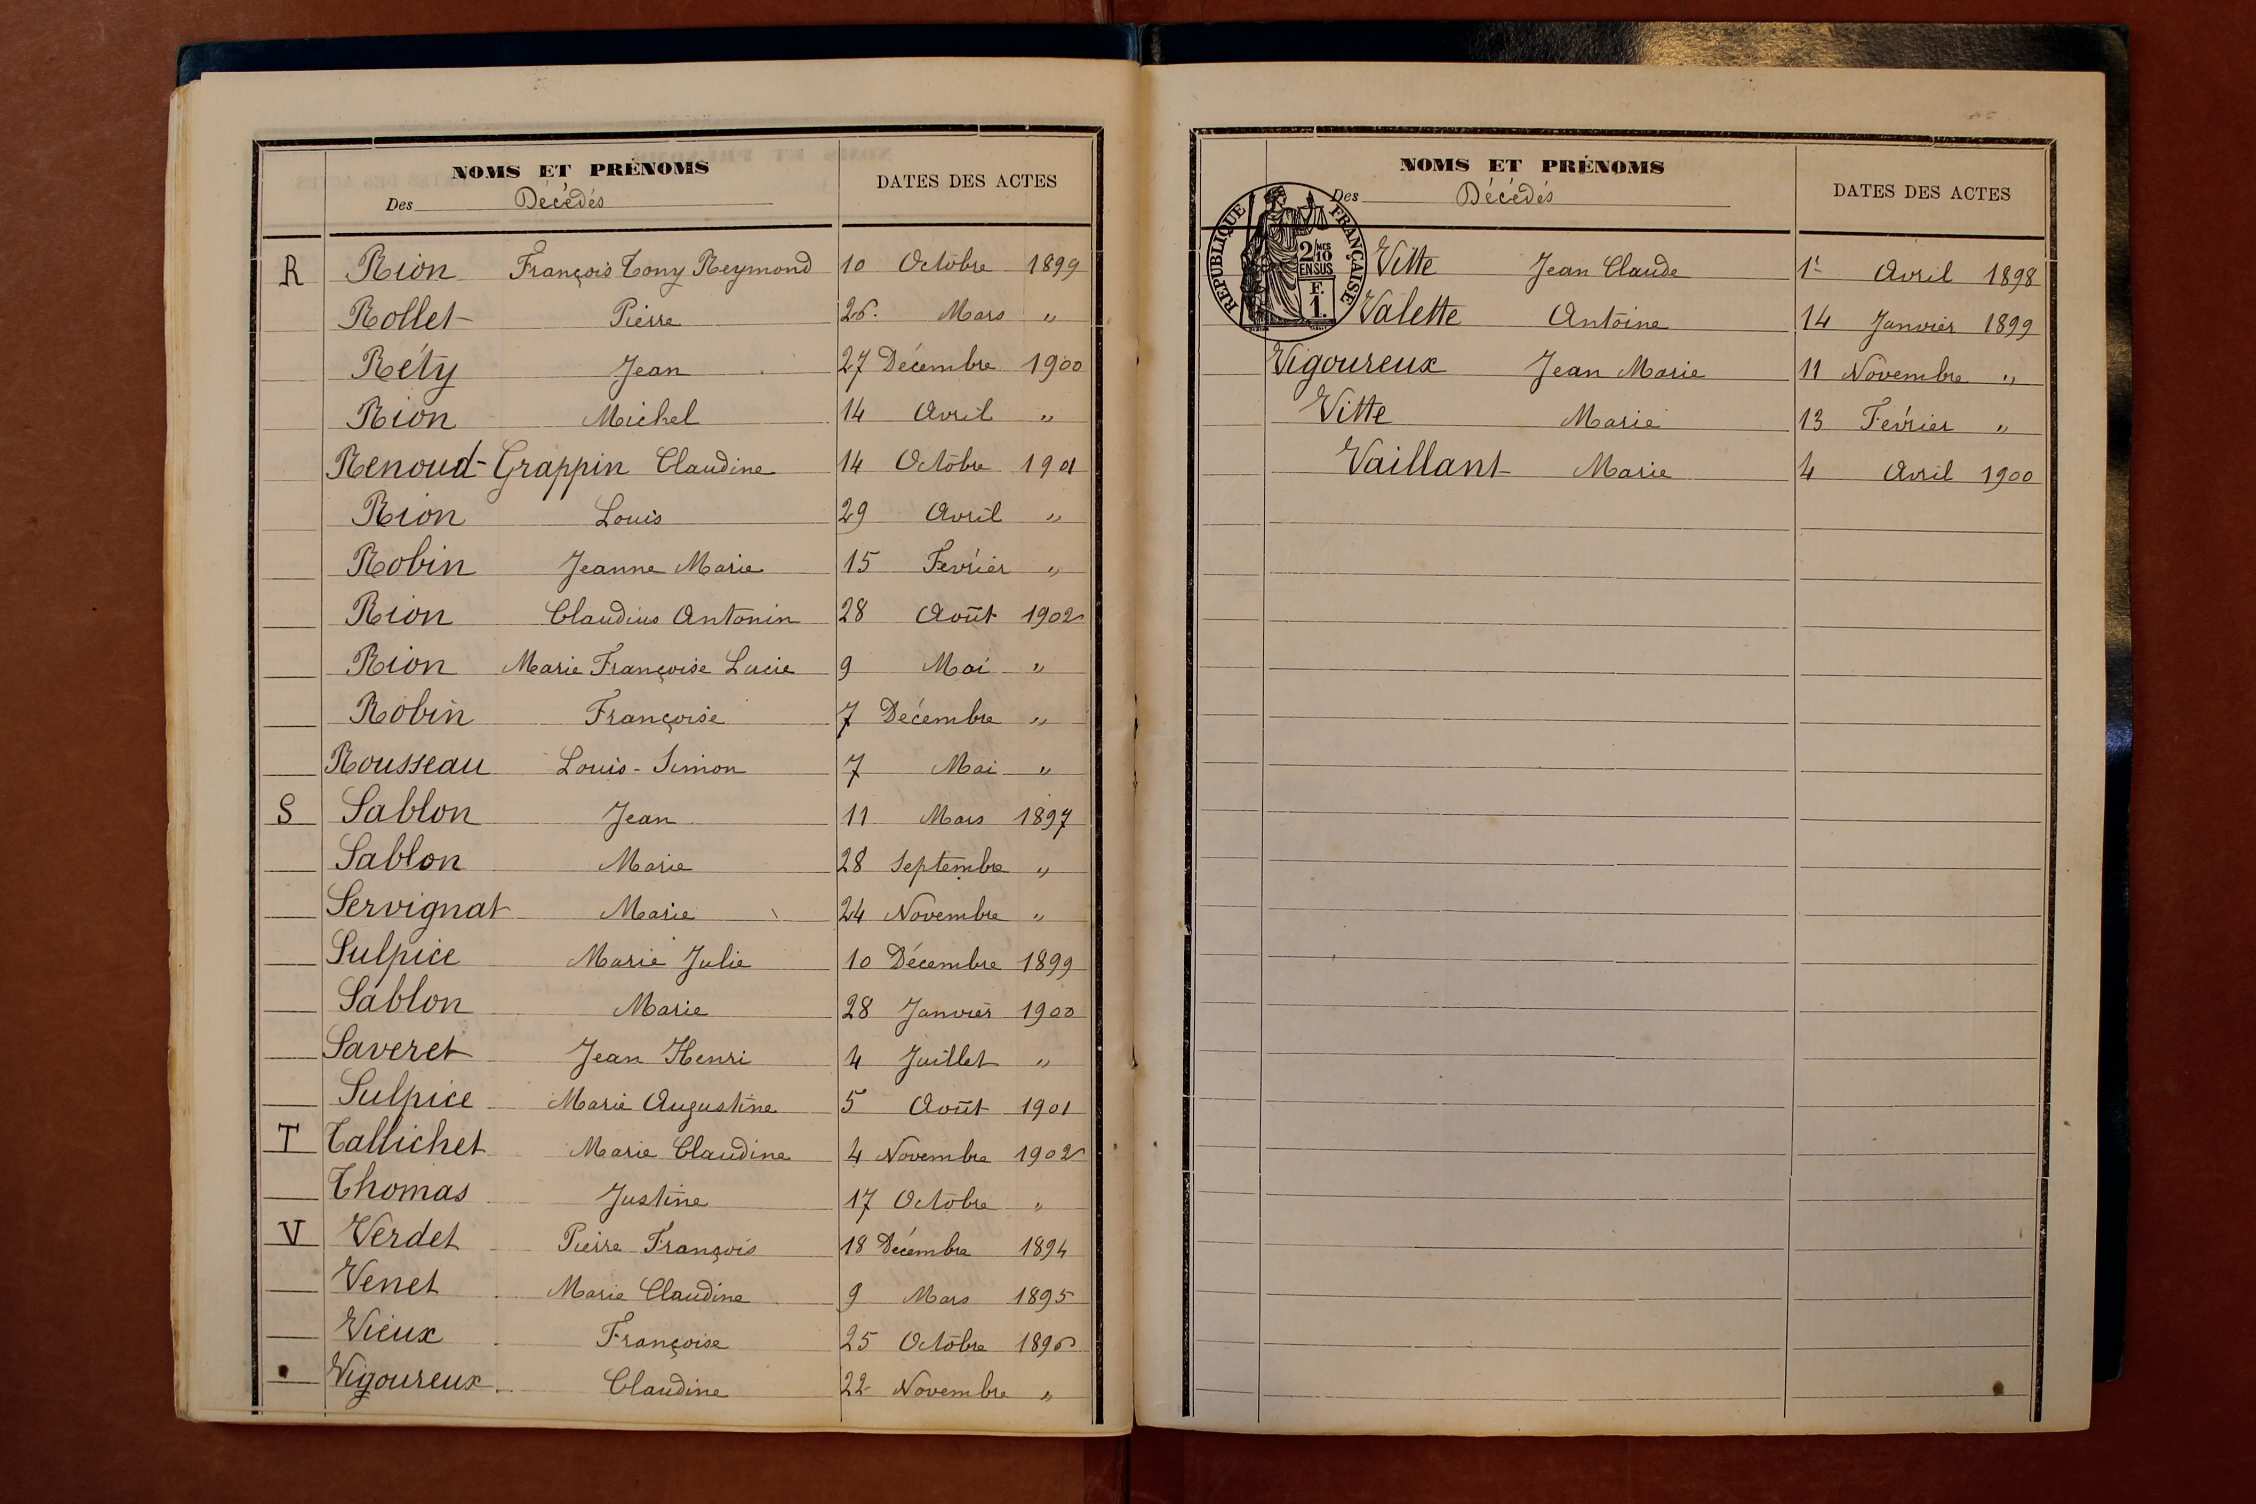 NOMS ET PRÉNOMS
Des Décédés
DATES DES ACTES
R Rion François Tony Reymond 10 Octobre 1899
Rollet Pierre 26. Mars "
Réty Jean 27 Décembre 1900
Rion Michel 14 Avril "
Renoud-Grappin Claudine 14 Octobre 1901
Rion Louis 29 Avril "
Robin Jeanne Marie 15 Février "
Rion Claudius Antonin 28 Août 1902
Rion Marie Françoise Lucie 9 Mai "
Robin Françoise 7 Décembre "
Rousseau Louis-Simon 7 Mai "
S Sablon Jean 11 Mars 1897
Sablon Marie 28 Septembre "
Servignat Marie 24 Novembre "
Sulpice Marie Julie 10 Décembre 1899
Sablon Marie 28 Janvier 1900
Saveret Jean Henri 4 Juillet "
Sulpice Marie Augustine 5 Août 1901
T Tallichet Marie Claudine 4 Novembre 1902
Thomas Justine 17 Octobre "
V Verdet Pierre François 18 Décembre 1894
Venet Marie Claudine 9 Mars 1895
Vieux Françoise 25 Octobre 1896
Vigoureux Claudine 22 Novembre "
NOMS ET PRÉNOMS
Des Décédés
DATES DES ACTES
RÉPUBLIQUE FRANÇAISE
2/10 MES
EN SUS
F.
1.
Vitte Jean Claude 1er Avril 1898
Valette Antoine 14 Janvier 1899
Vigoureux Jean Marie 11 Novembre "
Vitte Marie 13 Février "
Vaillant Marie 4 Avril 1900